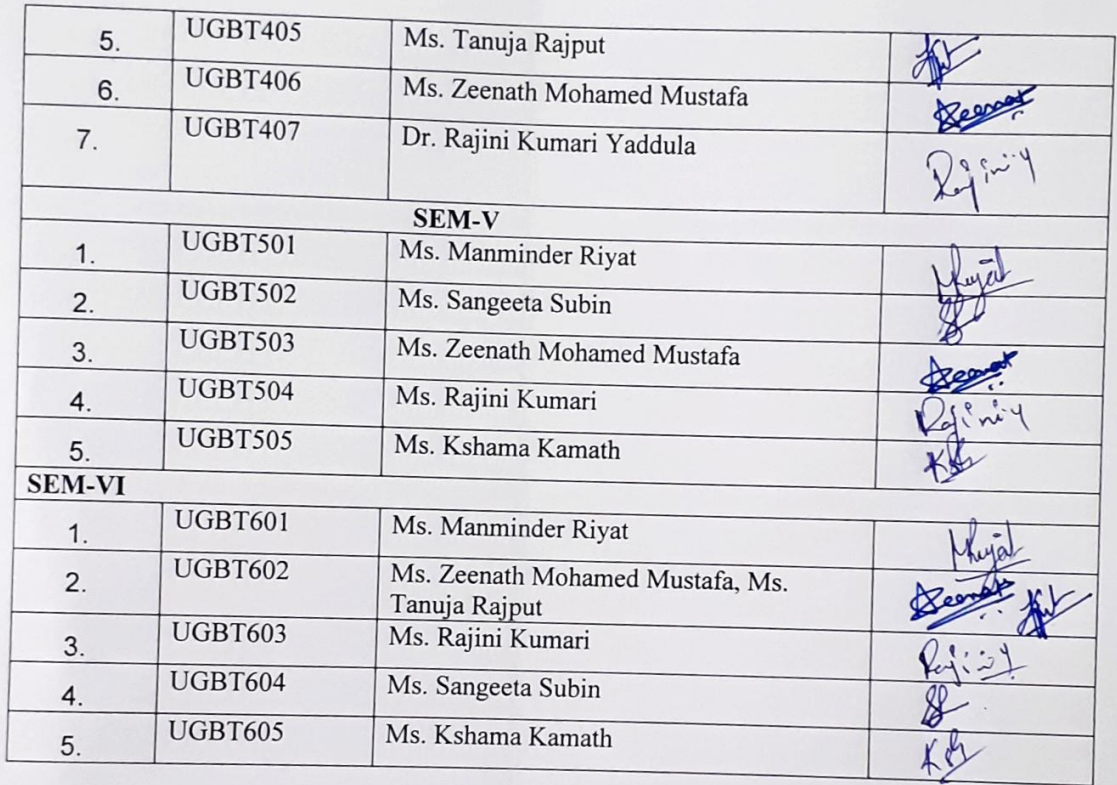 5. UGBT405 Ms. Tanuja Rajput
6. UGBT406 Ms. Zeenath Mohamed Mustafa Zeenat
7. UGBT407 Dr. Rajini Kumari Yaddula Rajini Y
SEM-V
1. UGBT501 Ms. Manminder Riyat
2. UGBT502 Ms. Sangeeta Subin
3. UGBT503 Ms. Zeenath Mohamed Mustafa Zeenat
4. UGBT504 Ms. Rajini Kumari Rajini Y
5. UGBT505 Ms. Kshama Kamath
SEM-VI
1. UGBT601 Ms. Manminder Riyat
2. UGBT602 Ms. Zeenath Mohamed Mustafa, Ms. Zeenat
Tanuja Rajput
3. UGBT603 Ms. Rajini Kumari Rajini Y
4. UGBT604 Ms. Sangeeta Subin
5. UGBT605 Ms. Kshama Kamath